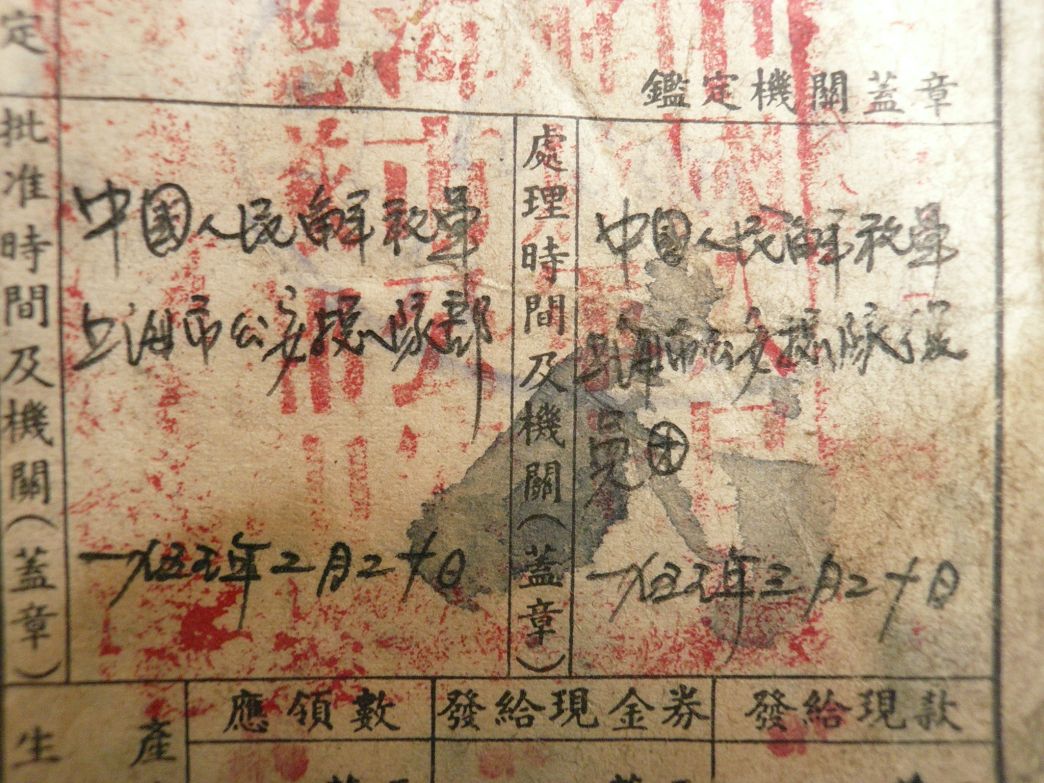 定
鑑定機關蓋章
批准時間及機關(蓋章)
中國人民解放軍
上海市公安摠隊部
一九五五年二月二十日
處理時間及機關(蓋章)
中國人民解放軍
上海市公安摠隊復
員团
一九五五年三月二十日
生產
應領數
發給現金券
發給現款